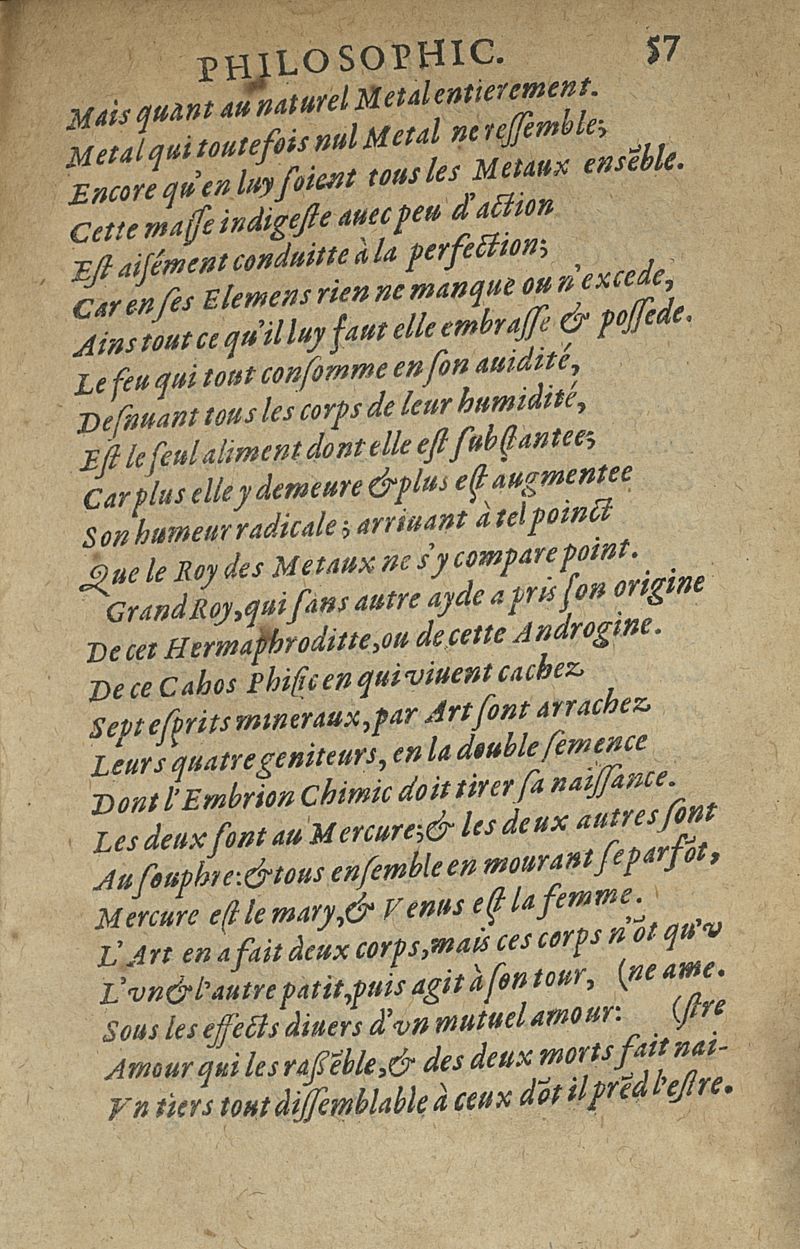 PHILOSOPHIC. 57
Mais quant au naturel Metal entierement.
Metal qui toutefois nul Metal ne reſſemble;
Encore qu'en luy ſoient tous les Metaux ensẽble.
Cette maſſe indigeſte auec peu d'action
Eſt aiſément conduitte à la perfection;
Car en ſes Elemens rien ne manque ou n'excede,
Ains tout ce qu'il luy faut elle embraſſe & poſſede.
Le feu qui tout conſomme en ſon auidité,
Deſnuant tous les corps de leur humidité,
Eſt le ſeul aliment dont elle eſt ſubſtantee;
Car plus elle y demeure & plus eſt augmentee
Son humeur radicale; arriuant à tel poinct
Que le Roy des Metaux ne s'y compare point.
Grand Roy, qui ſans autre ayde a pris ſon origine
De cet Hermaphroditte, ou de cette Androgine.
De ce Cahos Phiſic en qui viuent cachez
Sept eſprits mineraux, par Art ſont arrachez
Leurs quatre geniteurs, en la double ſemence
Dont l'Embrion Chimic doit tirer ſa naiſſance.
Les deux ſont au Mercure; & les deux autres ſont
Au ſouphre: & tous enſemble en mourant ſe parfõt,
Mercure eſt le mary, & Venus eſt la femme.
L'Art en a fait deux corps, mais ces corps n'õt qu'v
L'vn & l'autre patit, puis agit à ſon tour, (ne ame.
Sous les effects diuers d'vn mutuel amour: (ſtre
Amour qui les raſſẽble, & des deux morts fait nai-
Vn tiers tout diſſemblable à ceux dõt il prẽd l'eſtre.